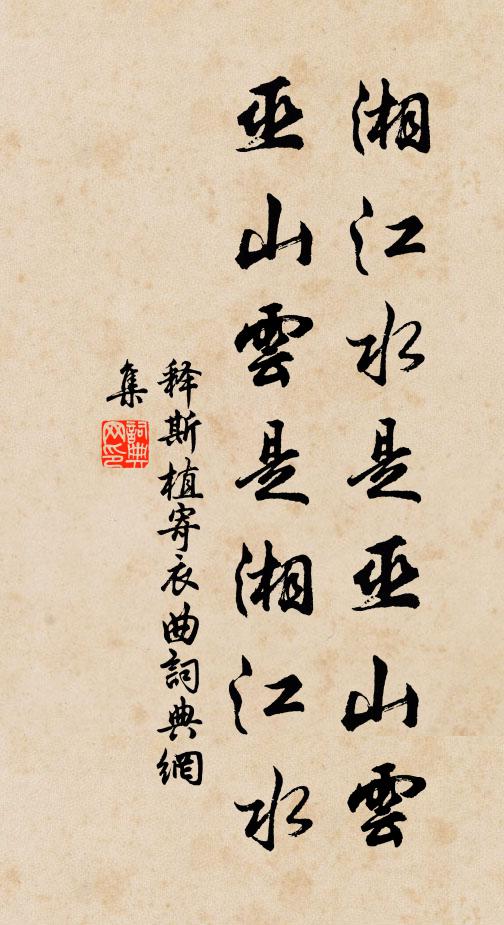 湘江水是巫山雲
巫山雲是湘江水
释斯植寄衣曲詞典網
集
詞典网印